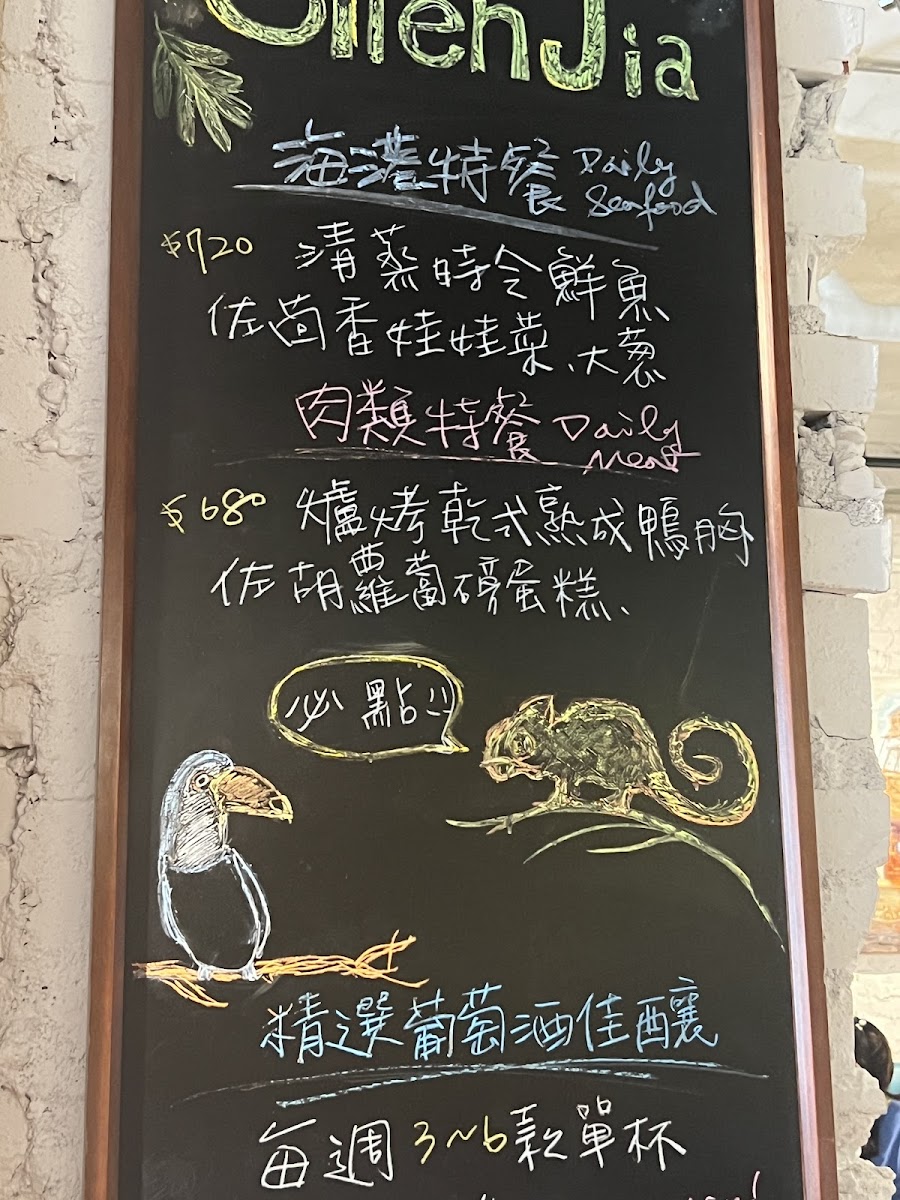 海港特餐 Daily Seafood
$720 清蒸時令鮮魚
佐茴香娃娃菜、大蔥
肉類特餐 Daily Meat
$680 爐烤乾式熟成鴨胸
佐胡蘿蔔磅蛋糕、
必點!!
精選葡萄酒佳釀
每週3~6款單杯